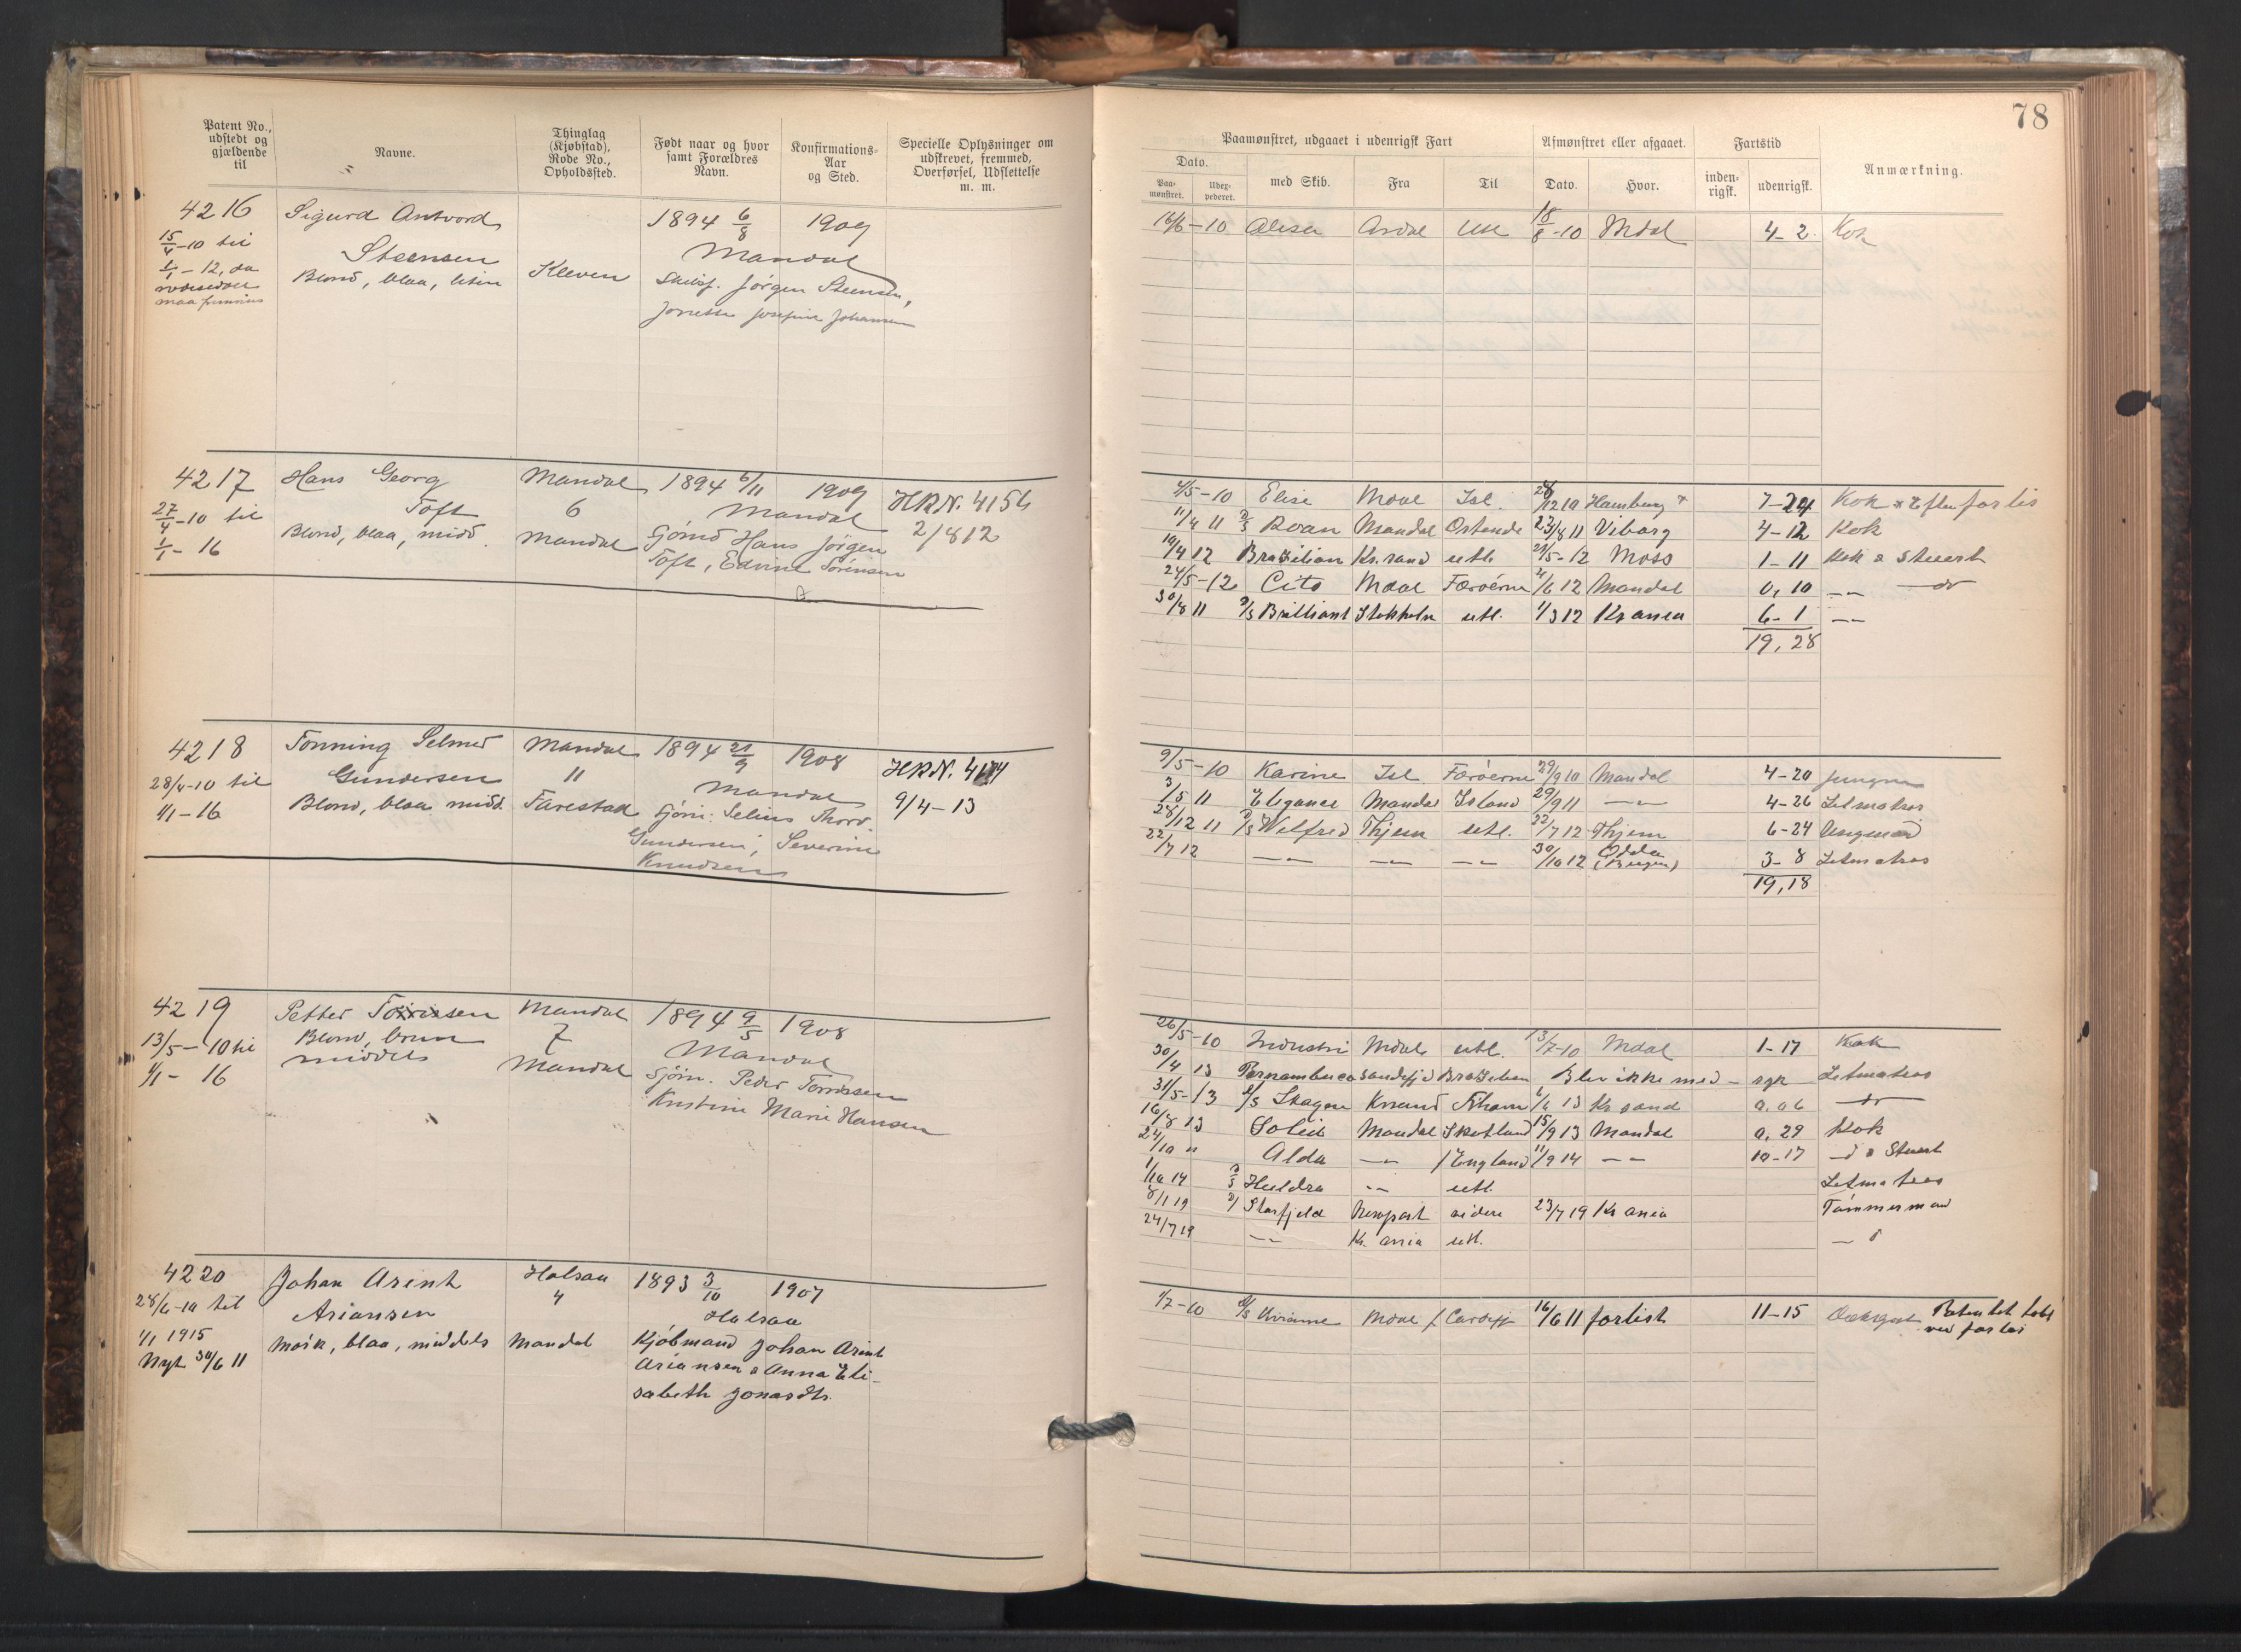 78
Patent No., udstedt og gjældende til
Navne.
Thinglag (Kjøbstad), Rode No., Opholdssted.
Født naar og hvor samt Forældres Navn.
Konfirmations-Aar og Sted.
Specielle Oplysninger om udskrevet, fremmed, Overførsel, Udslettelse m. m.
Paamønstret, udgaaet i udenrigsk Fart
Dato.
Paa-mønstret.
med Skib.
Fra
Til
Afmønstret eller afgaaet.
Dato.
Hvor.
Fartstid
inden-rigsk.
udenrigsk.
Anmærkning.
4216 Sigurd Antvord 1894 6/8 1909
15/4-10 til Steensen Mandal
1/1-12, da Blond, blaa, liten Kleven
Jørgen Steensen,
Josefine Johansen
16/6-10 Ardal 18/8-10 Mdal 4-2 Kok
4217 Hans Georg Mandal 1894 6/11 1909 HRN. 4154
27/4-10 til Toft 6 Mandal 2/8 12
1/1-16 Blond, blaa, midd. Mandal Sjømd Hans Jørgen
Toft, Edvine Sørensen
4/5-10 Elise Mdal Isl. Hamburg 7-24 Kok
11/4 11 Mandal Ostende 23/8 11 Viborg 4-12 Kok
10/4 12 Brazilian Kr.sand utl. 29/5-12 Moss 1-11 Kok & Stuert
24/5-12 Cito Mdal Færøerne 12 Mandal 0,10 — do
30/8 11 Brilliant Stokholm utl. 1/3 12 Kr ania 6-1 —"—
19,28
4218 Tonning Selmer Mandal 1894 21/9 1908 HRN.
28/4-10 til Gundersen 11 Mandal 9/4-13
1/1-16 Blond, blaa midd. Farestad Sjøm. Selius Thorv.
Gundersen, Severine
Knudsen
9/5-10 Karine Isl. Færøerne 29/9 10 Mandal 4-20
3/5 11 Elegance Mandal Island 29/9 11 —"— 4-26 Letmatros
28/12 11 Wilfred Thjem utl. 22/7 12 Thjem 6-24 Ungmand
22/7 12 —"— —"— —"— 30/10 12 Odda (Bergen) 3-8 Letmatros
19,18
4219 Petter Torrissen Mandal 1894 9/5 1908
13/5-10 til Blond, brun 7 Mandal
1/1-16 middels Mandal Sjøm. Peder Torrissen
Kristine Marie Hansen
26/5-10 Industri Mdal utl. 13/7-10 Mdal 1-17 Kok
30/4 13 Pernambuco Sandefjd Brasilien Blev ikke med - syk Letmatros
31/5-13 Skagen Krsand 13 Kr sand 0.06 do
16/8 13 Soleid Mandal Skotland 15/9 13 Mandal 0,29 Kok
24/10 " Alda —"— England 11/9 14 —"— 10-17 — do & Stuert
1/10 14 Huldra —"— utl. Letmatros
8/1 19 Starfjeld Newport videre 23/7 19 Kr ania Tømmermand
24/7 19 —"— Kr. ania utl.
4220 Johan Arint Halsaa 1893 3/10 1907
28/6-10 til Ariansen 4 Halsaa
1/1 1915 Mørk, blaa, middels Mandal Kjøbmand Johan Arint
Nyt 30/6 11 Ariansen & Anna Eli-
sabeth Jonasdtr.
1/7-10 Mdal Cardiff 16/6 11 forlist 11-15 Dæksgut Patentet tabt
ved forlis